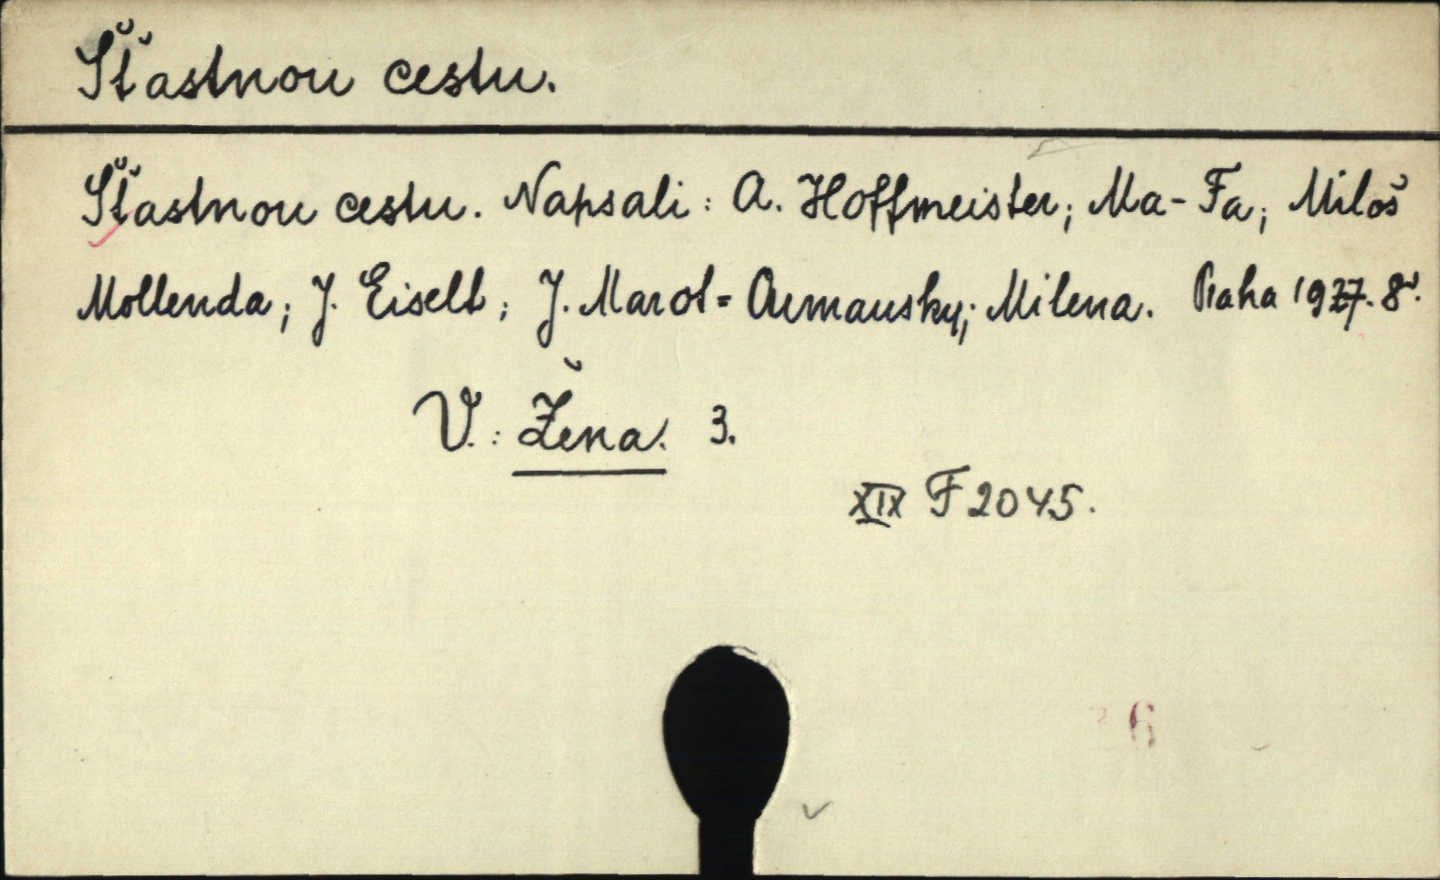 Šťastnou cestu.
Šťastnou cestu. Napsali: A. Hoffmeister; Ma-Fa; Miloš
Mollenda; J. Eiselt; J. Marot= Aumansky; Milena. Praha 1927. 8°.
V.: Žena. 3.
XIX F 2045.
6